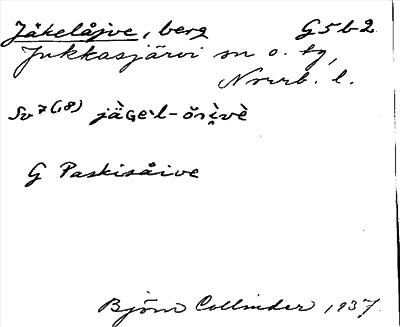 Jäkelåjve, berg G5b2
Jukkasjärvi sn o. tg,
Nrrb. l.
Sv 7(,8) jä̀ɢe·l-ŏrì̭vè
G Paskisåive
Björn Collinder 1937.